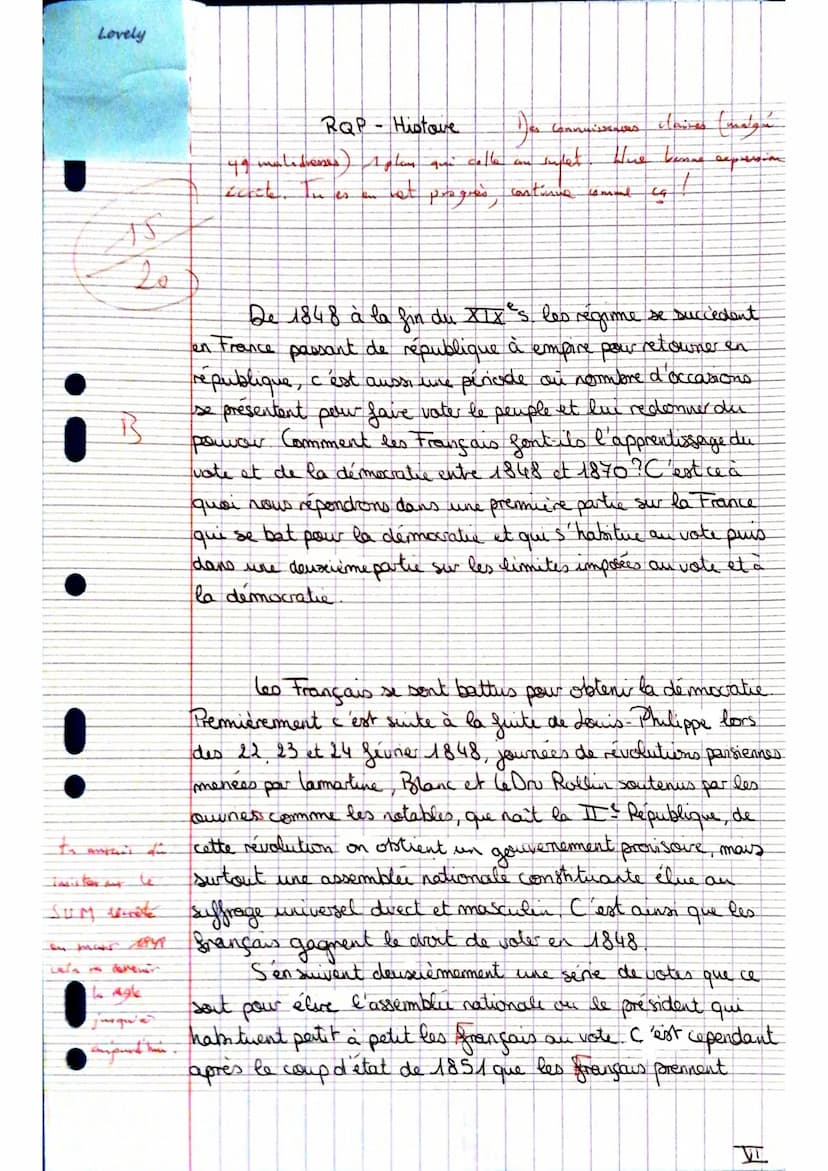 Lovely
RQP - Histoire
Des connaissances claires (malgré
qq maladresses) 1 plan qui colle au sujet. Une bonne expression
écrite. Tu es en net progrès, continue comme ça !
15
20
De 1848 à la fin du XIXe s. les régime se succèdent
en France passant de république à empire pour retourner en
république, c'est aussi une période où nombre d'occasions
se présentent pour faire voter le peuple et lui redonner du
B
pouvoir. Comment les Français font-ils l'apprentissage du
vote et de la démocratie entre 1848 et 1870 ? C'est ce à
quoi nous répondrons dans une première partie sur la France
qui se bat pour la démocratie et qui s'habitue au vote puis
dans une deuxième partie sur les limites imposées au vote et à
la démocratie.
Les Français se sont battus pour obtenir la démocratie.
Premièrement c'est suite à la fuite de Louis-Philippe lors
des 22, 23 et 24 février 1848, journées de révolutions parisiennes
menées par Lamartine, Blanc et LeDru Rollin soutenus par les
ouvriers comme les notables, que naît la IIe République, de
cette révolution on obtient un gouvernement provisoire, mais
surtout une assemblée nationale constituante élue au
suffrage universel direct et masculin. C'est ainsi que les
français gagnent le droit de voter en 1848.
Tu aurais dû
insister sur le
SUM décrété
en mars 1848
cela va devenir
la règle
jusqu'à
aujourd'hui.
S'en suivent deuxièmement une série de votes que ce
soit pour élire l'assemblée nationale ou le président qui
habituent petit à petit les français au vote. C'est cependant
après le coup d'état de 1851 que les français prennent
VI